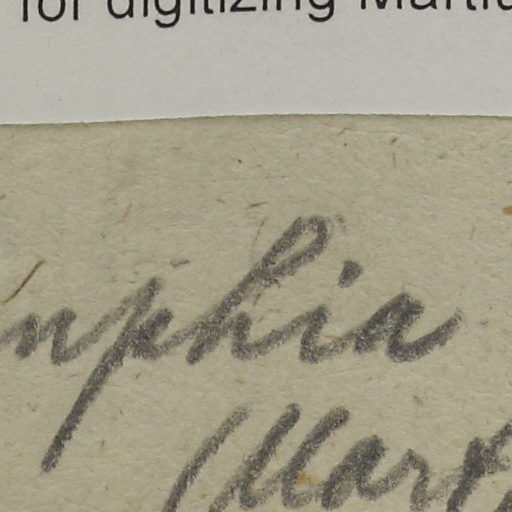 for digitizing Martiu
nphia
Mart